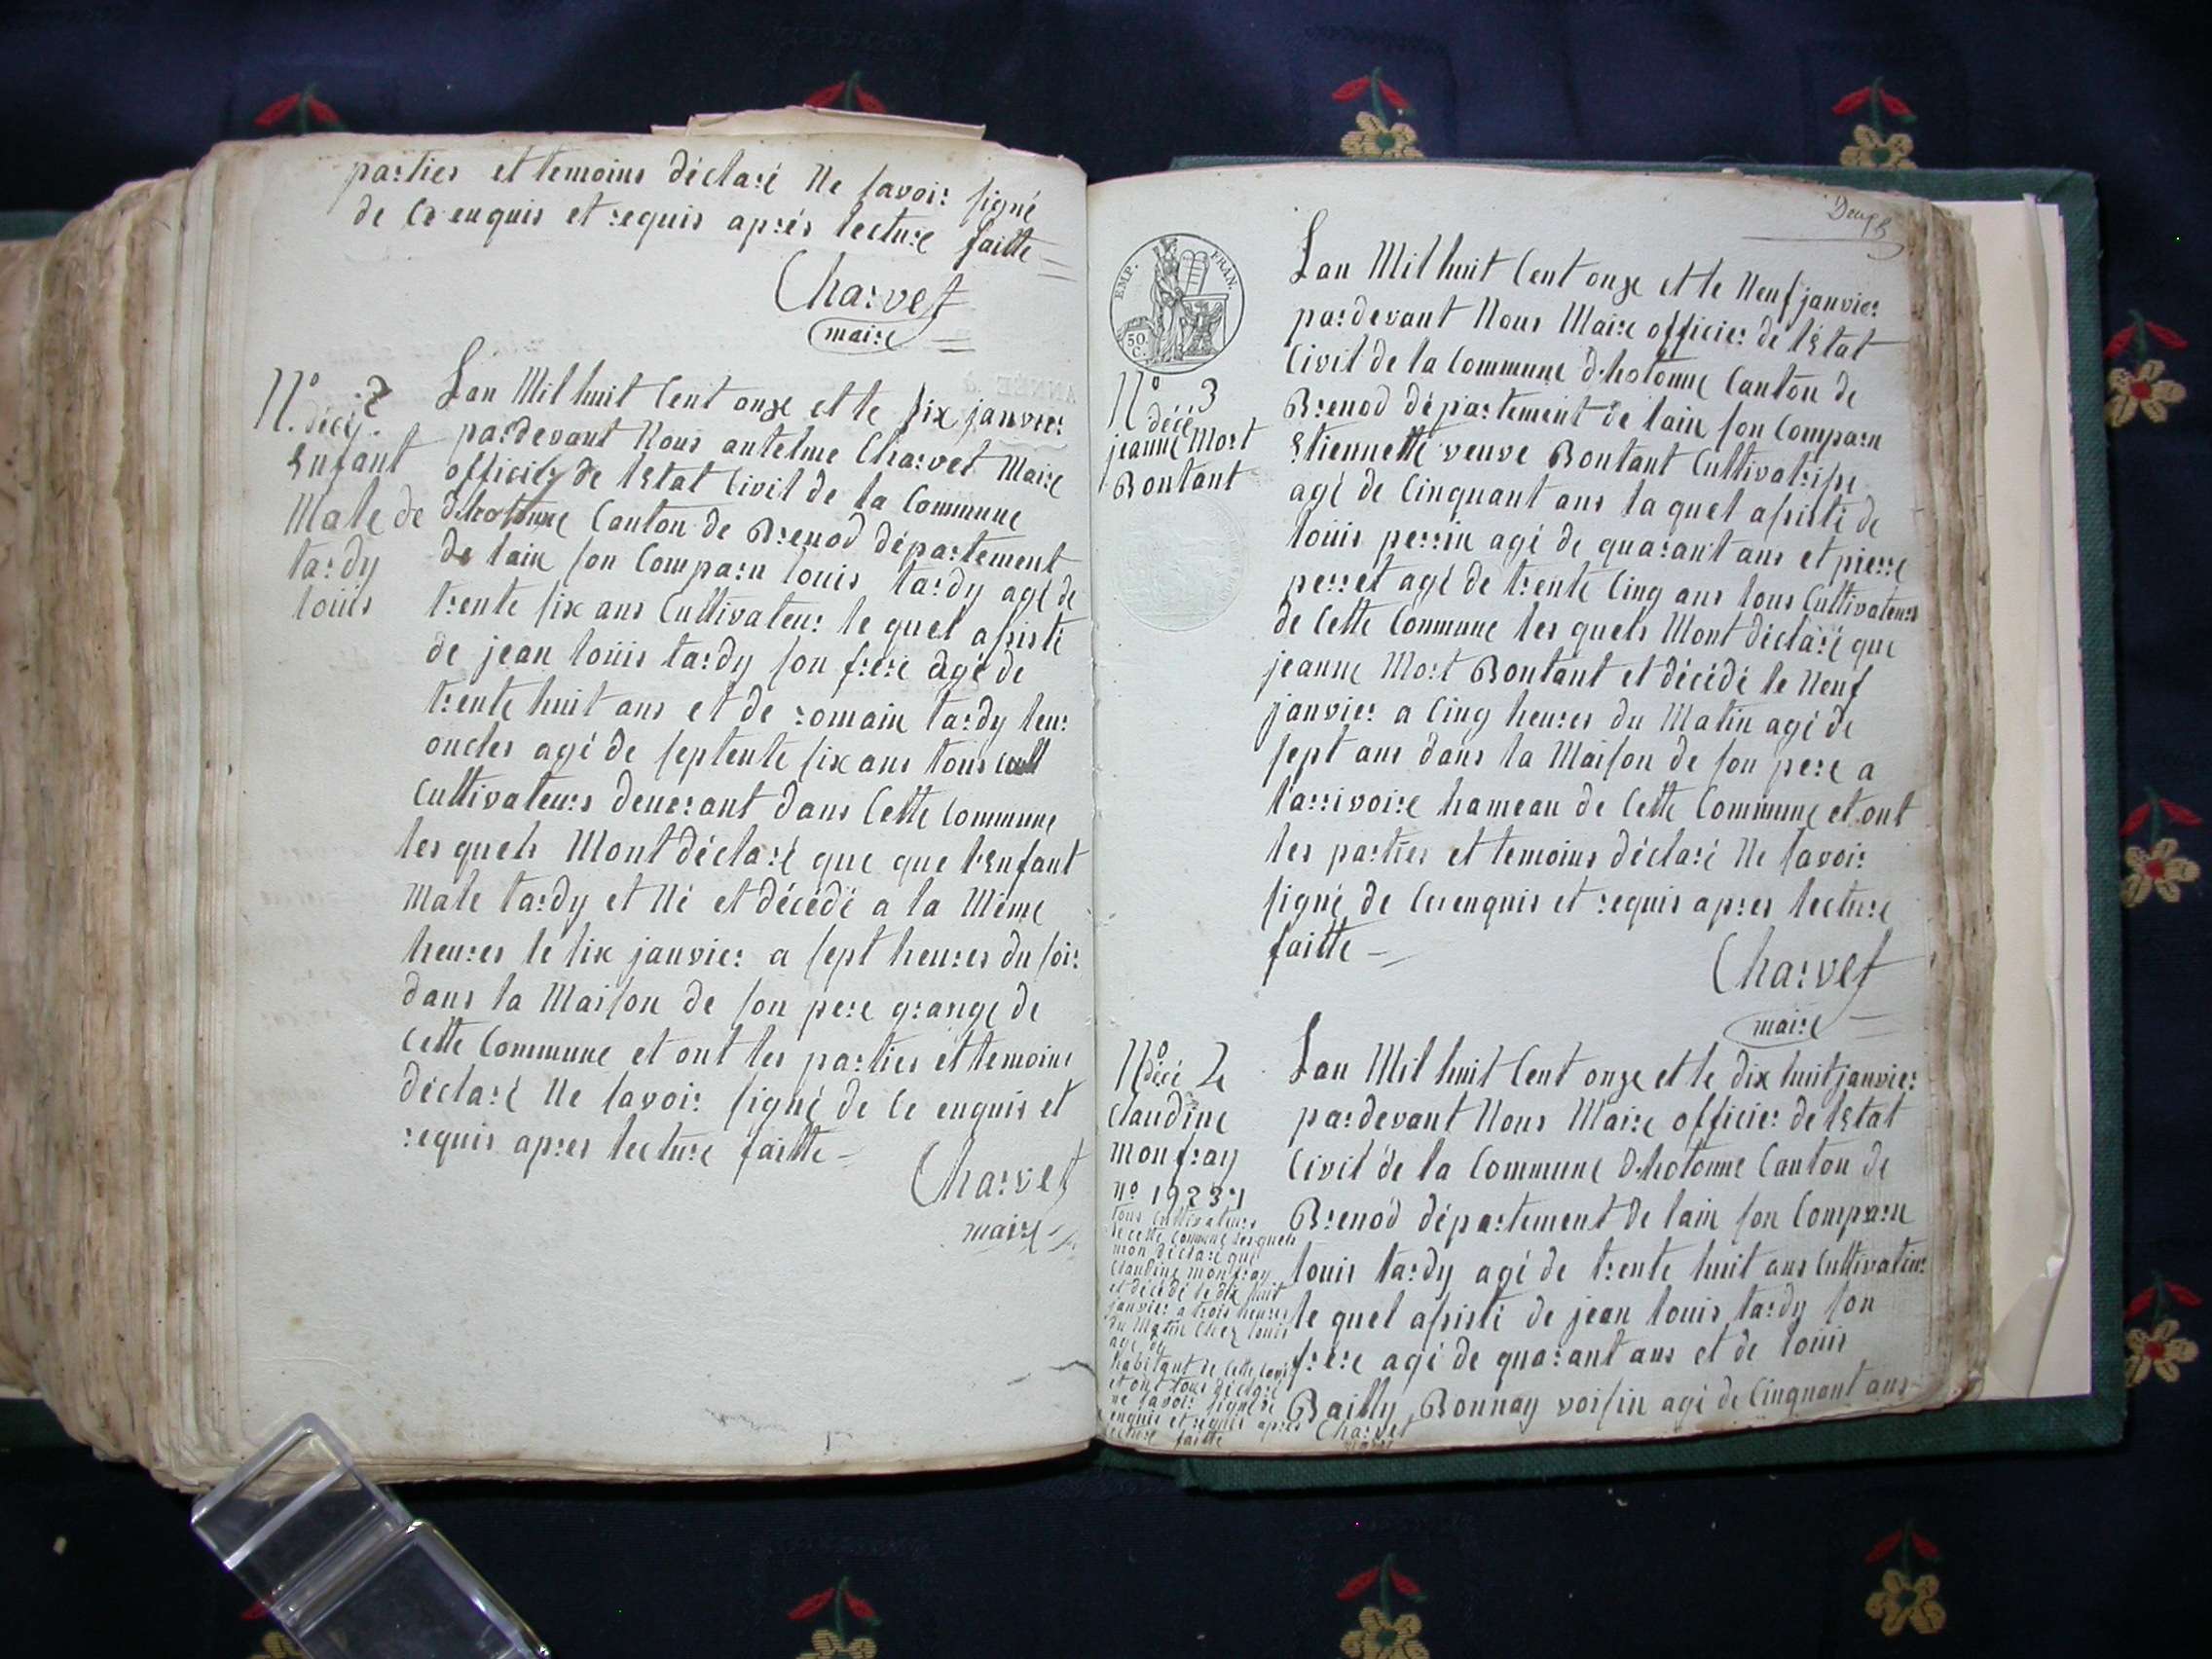 parties et temoins déclaré Ne savoir signé
de Ce enquis et requis aprés lecture faitte
Charvet
maire
N.° 2
décé.
Enfant
Male de
tardy
loüis
Lan Mil huit Cent onze et le six janvier
pardevant Nous antelme Charvet Maire
officier de lEtat Civil de la Commune
dhotonne Canton de Brenod département
de lain son Comparu louis tardy agé de
trente six ans Cultivateur le quel asisté
de jean loüis tardy son frere agé de
trente huit ans et de romain tardy leur
oncles agé de septente six ans tous cult
Cultivateurs demerant dans Cette Commune
les quels Mont déclaré que que l'Enfant
Male tardy et Né et décédé a la Même
heures le six janvier a sept heures du soir
dans la Maison de son pere grange de
Cette Commune et ont les parties et temoins
déclaré Ne savoir signé de Ce enquis et
requis apres lecture faitte
Charvet
maire
Deux
EMP. FRAN.
50.
C.
N.° 3
décé
jeanne Mort
Bontant
Lan Mil huit Cent onze et le Neuf janvier
pardevant Nous Maire officier de lEtat
Civil de la Commune d.hotonne Canton de
Brenod département de lain son Comparu
Etiennette veuve Bontant Cultivatrisse
agé de Cinquant ans la quel asisté de
loüis perrin agé de quarant ans et pierre
perret agé de trente Cinq ans tous Cultivateurs
de Cette Commune les quels Mont déclaré que
jeanne Mort Bontant et décédé le Neuf
janvier a Cinq heures du Matin agé de
sept ans dans la Maison de son pere a
larrivoire hameau de Cette Commune et ont
les parties et temoins déclaré Ne savoir
signé de Ces enquis et requis apres lecture
faitte
Charvet
maire
N° 4
décé
Claudine
monfray
Lan Mil huit Cent onze et le dix huit janvier
pardevant Nous Maire officier de lEtat
Civil de la Commune D.hotonne Canton de
Brenod département de lain son Comparu
louis tardy agé de trente huit ans Cultivateur
le quel asisté de jean louis tardy son
frere agé de quarant ans et de louis
Bailly Bonnay voisin agé de Cinquant ans
tous Cultivateurs
de cette Commune les quels
mon déclaré que
Claudine monfray
et décédé le dix huit
janvier a trois heures
du Matin Chez louis
agé de
habitant de Cette
et ont tous déclaré
ne savoir signé de
enquis et requis apres
lecture faitte
Charvet
maire